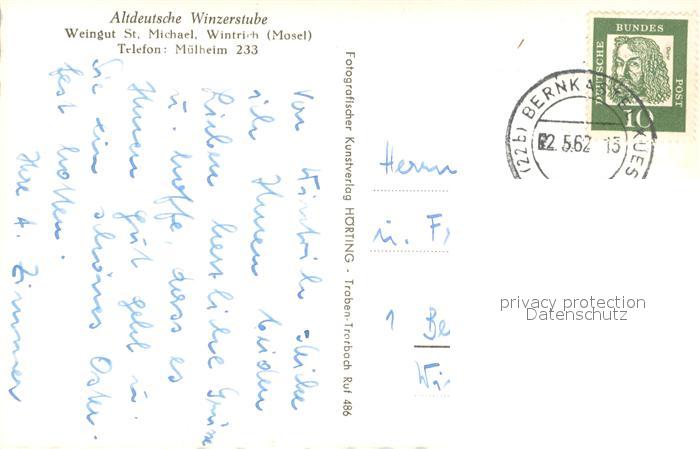 Altdeutsche Winzerstube
Weingut St. Michael, Wintrich (Mosel)
Telefon: Mülheim 233
Von Wintrich schicke
ich Ihnen beiden
Lieben herzliche Grüße
u. hoffe, dass es
Ihnen gut geht u.
Sie ein schönes Oster-
fest hatten.
Ihre A. Zimmer
Fotografischer Kunstverlag HÖRTING - Traben-Trarbach Ruf 486
DEUTSCHE BUNDES POST
Dürer
10
(22b) BERNKASTEL-KUES
2.5.62 - 15
Herrn
u. F
1 Be
privacy protection
Datenschutz